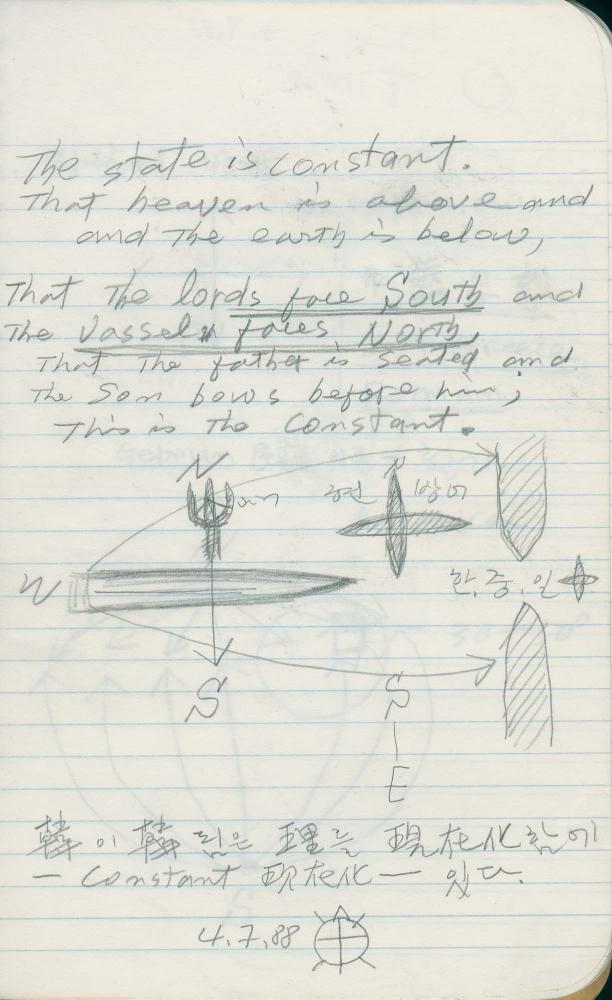 The state is constant.
That heaven is above and
and The earth is below,
That The lords face South and
The Vassels faces North,
That The father is seated and
The Son bows before him;
This is The Constant.
N
N
방어
W
한.중.일
S
S
E
韓이 韓됨은 理를 現在化함에
— Constant 現在化 — 있다.
4.7.88